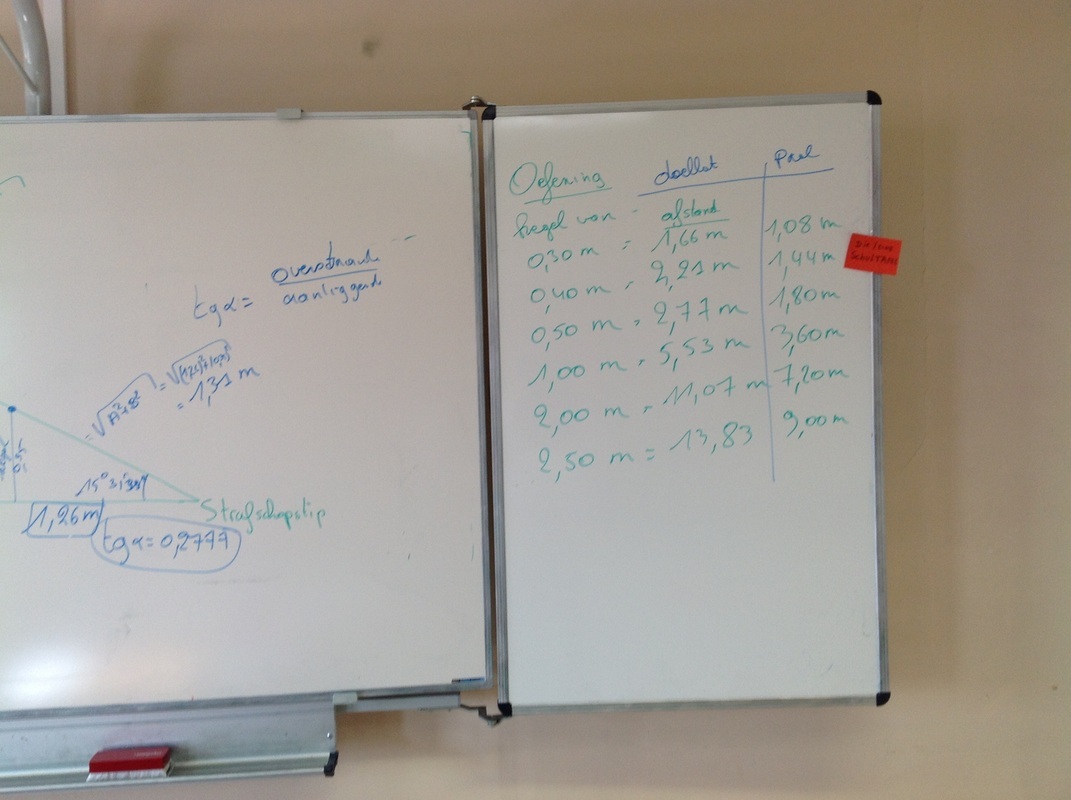 tg α = overstaande
aanliggende
= √A²+B² =
= 1,31 m
15° 31' 39"
1,26 m
Strafschopstip
tg α = 0,2777
Oefening doellat Paal
Kegel van - afstand
0,30 m = 1,66 m 1,08 m
0,40 m = 2,21 m 1,44 m
0,50 m = 2,77 m 1,80 m
1,00 m = 5,53 m 3,60 m
2,00 m = 11,07 m 7,20 m
2,50 m = 13,83 9,00 m